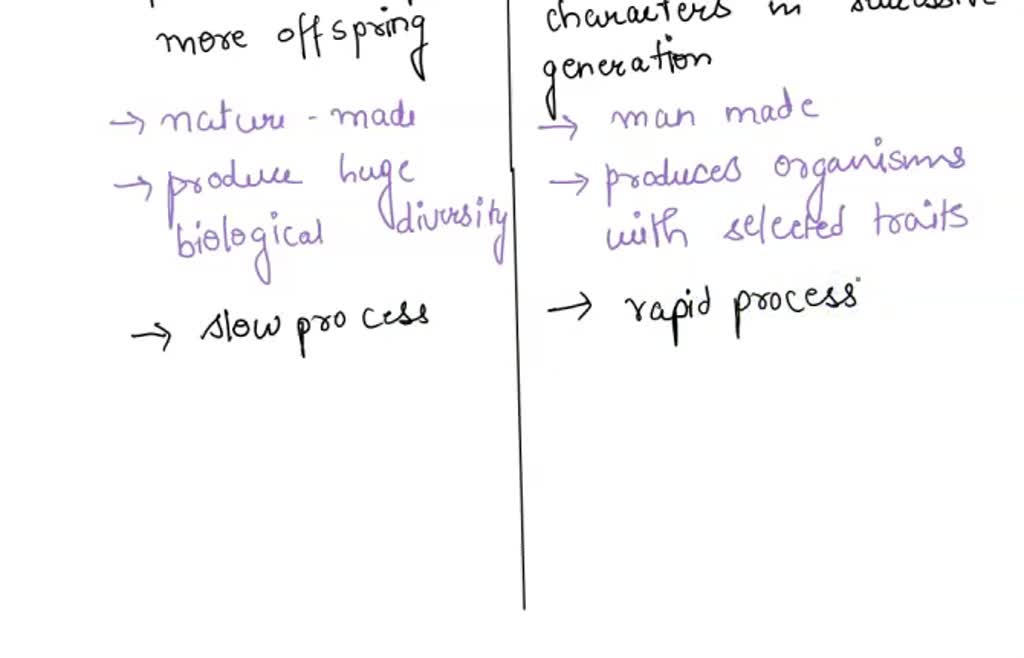 more offspring
→ nature - made
→ produce huge
biological diversity
→ slow process
characters in successive
generation
→ man made
→ produces organisms
with selected traits
→ rapid process